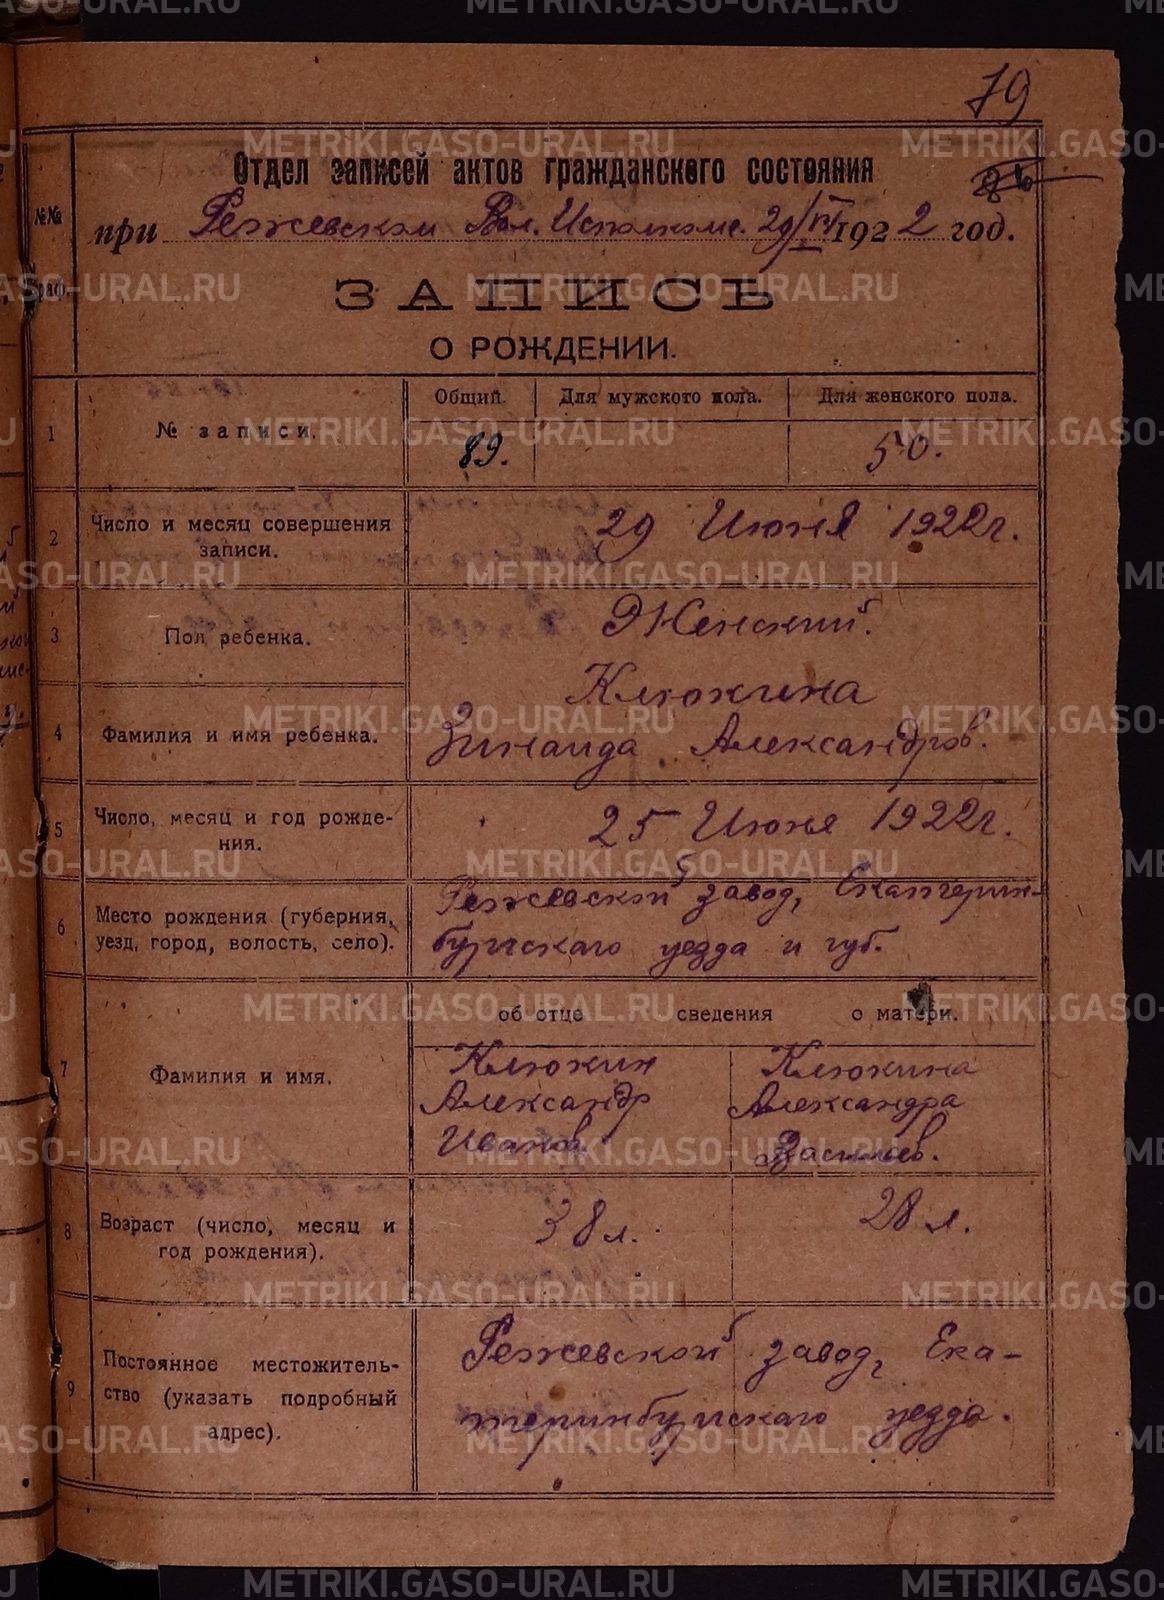 79
Отдел записей актов гражданского состояния
№№ граф.
при Режевском Вол. Исполкоме. 29/VI 1922 год.
ЗАПИСЬ
О РОЖДЕНИИ.
1 № записи. Общий. Для мужского пола. Для женского пола.
89. 50.
2 Число и месяц совершения записи. 29 Июня 1922г.
3 Пол ребенка. Женский.
4 Фамилия и имя ребенка. Клюкина
Зинаида Александров.
5 Число, месяц и год рождения. 25 Июня 1922г.
6 Место рождения (губерния, Режевской завод, Екатерин-
уезд, город, волость, село). бургскаго уезда и губ.
об отце сведения о матери.
7 Фамилия и имя. Клюкин Клюкина
Александр Александра
Иванов. Васильев.
8 Возраст (число, месяц и год рождения). 38 л. 28 л.
9 Постоянное местожитель- Режевской завод, Ека-
ство (указать подробный теринбургскаго уезда.
адрес).
METRIKI.GASO-URAL.RU